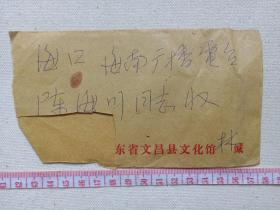 海口 海南广播电台
陈海川同志收
东省文昌县文化馆林缄